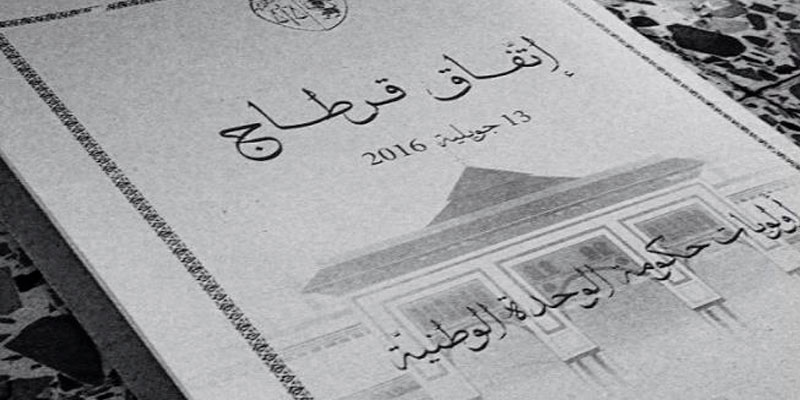 إتّفاق قرطاج
13 جويلية 2016
أولويات حكومة الوحدة الوطنيّة